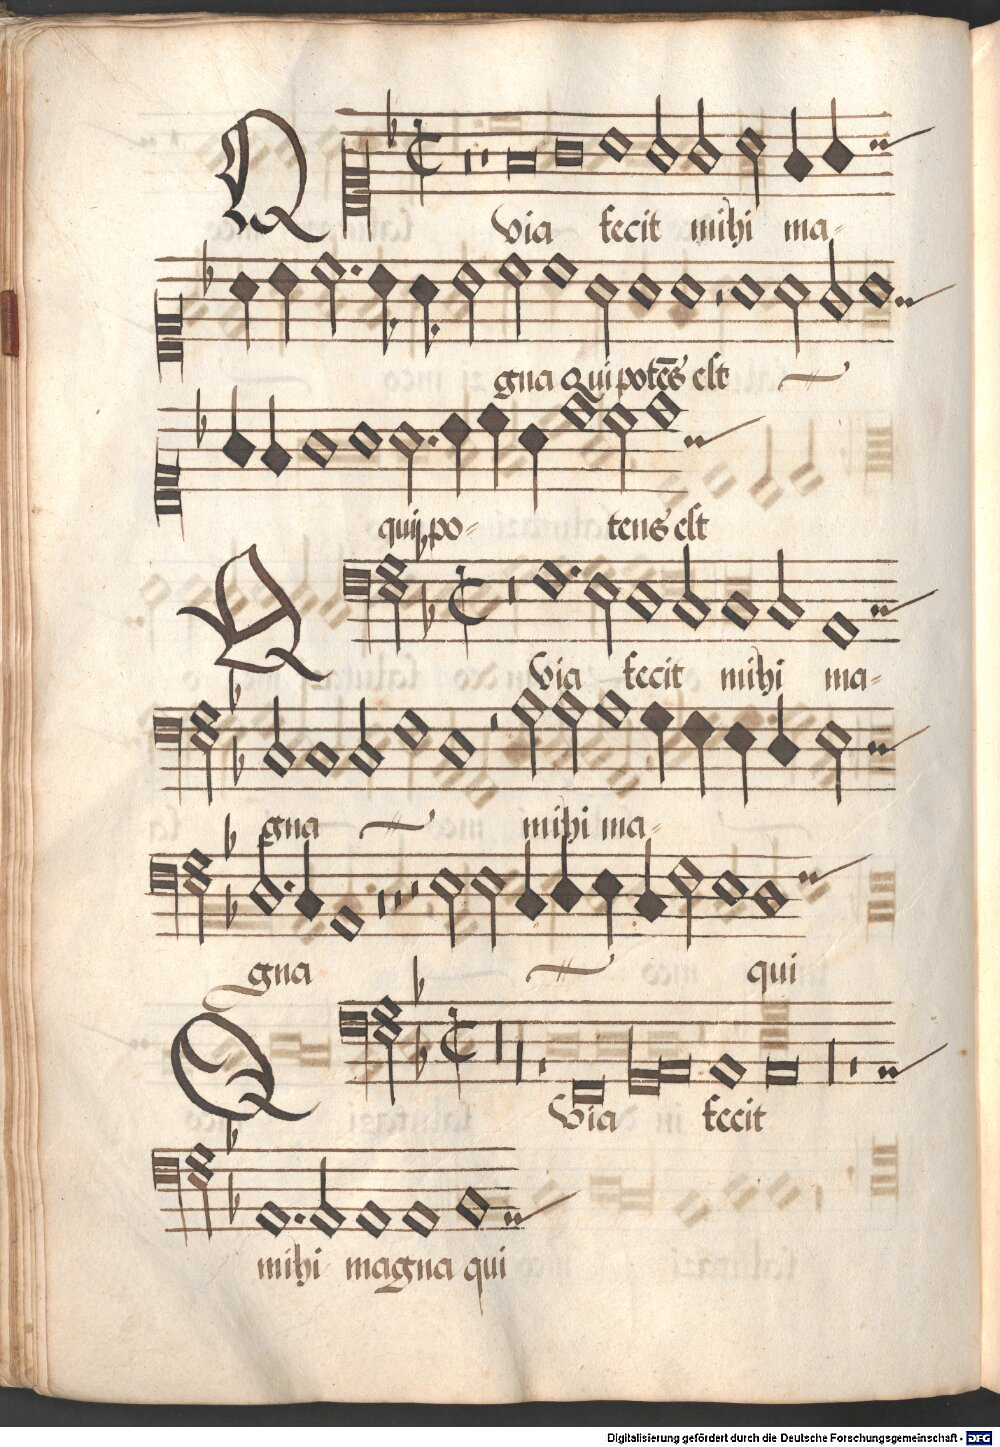 Quia fecit mihi ma-
gna Qui potēs est
qui po- tens est
Quia fecit mihi ma-
gna mihi ma-
gna qui
Quia fecit
mihi magna qui
Digitalisierung gefördert durch die Deutsche Forschungsgemeinschaft - DFG